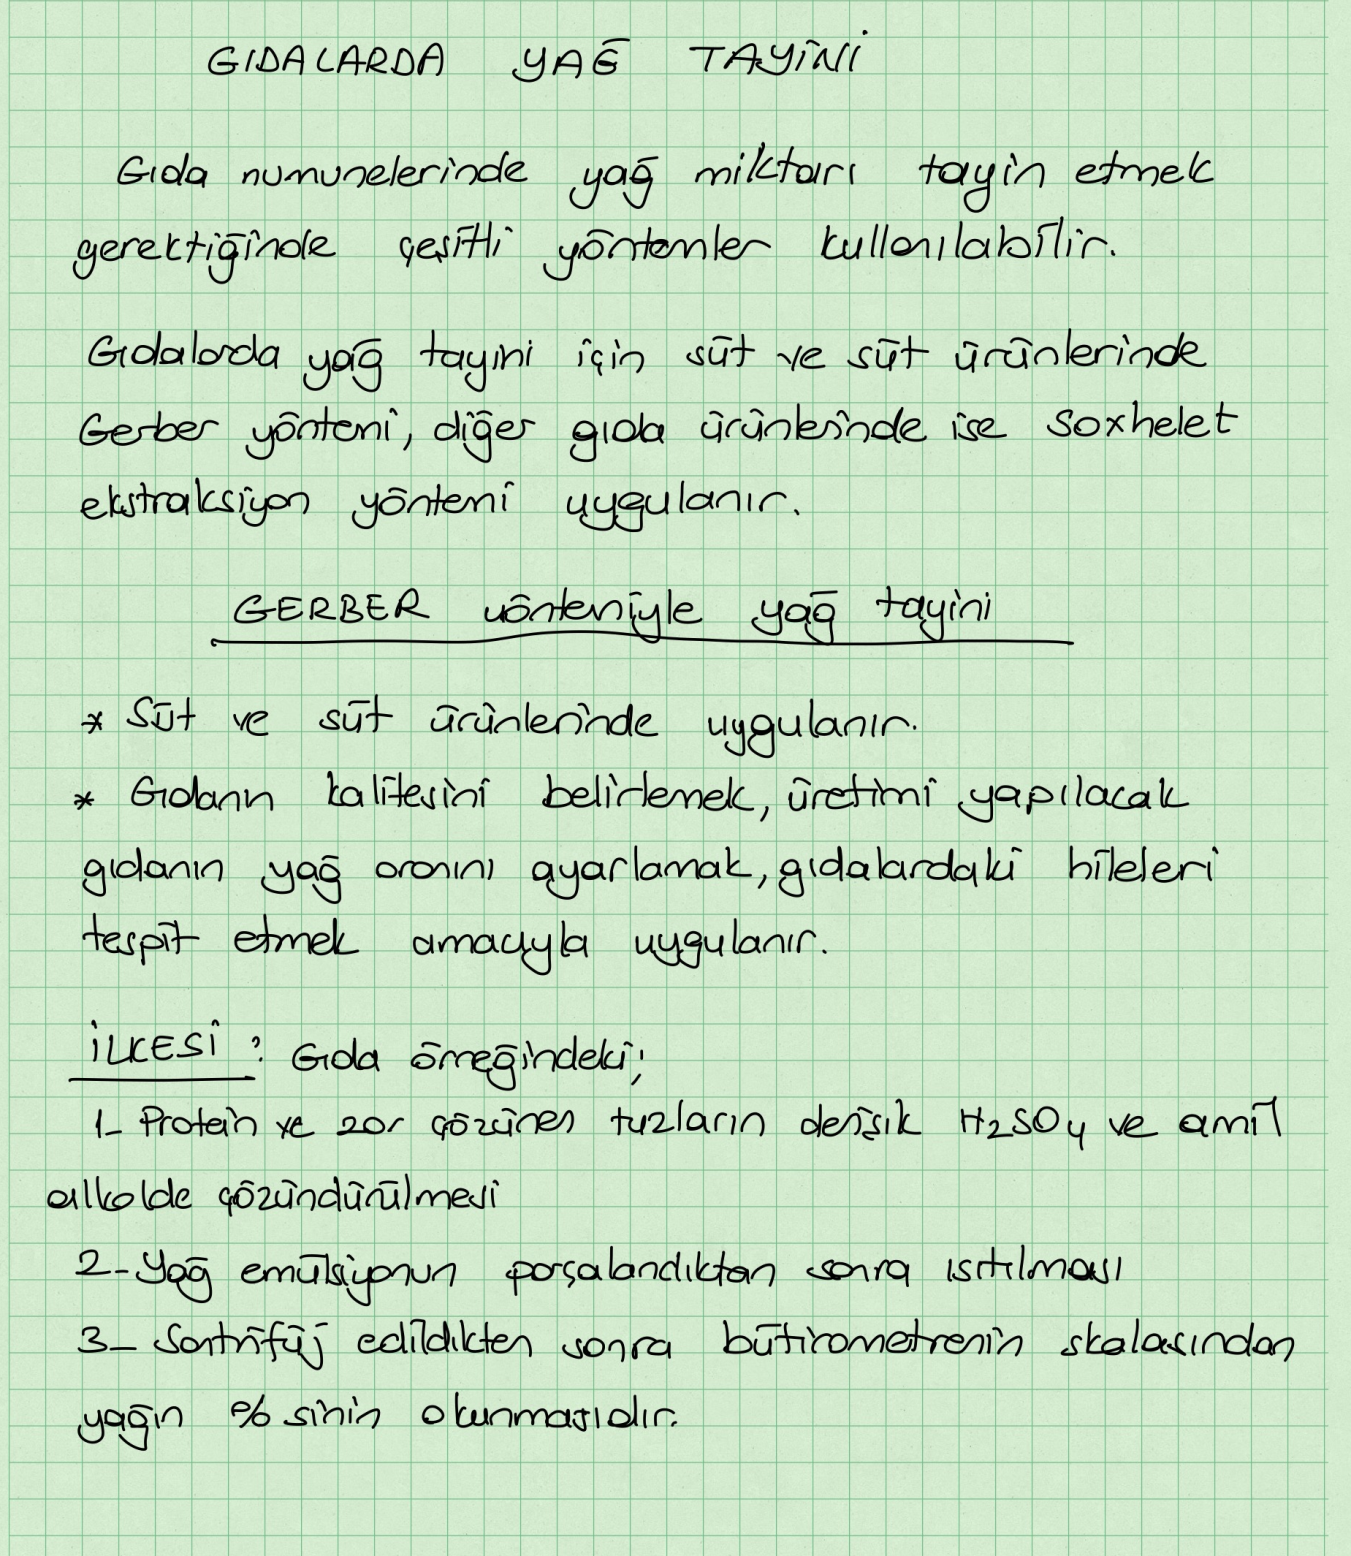 GIDALARDA YAĞ TAYİNİ
Gıda numunelerinde yağ miktarı tayin etmek
gerektiğinde çeşitli yöntemler kullanılabilir.
Gıdalarda yağ tayini için süt ve süt ürünlerinde
Gerber yöntemi, diğer gıda ürünlerinde ise soxhelet
ekstraksiyon yöntemi uygulanır.
GERBER yöntemiyle yağ tayini
* Süt ve süt ürünlerinde uygulanır.
* Gıdanın kalitesini belirlemek, üretimi yapılacak
gıdanın yağ oranını ayarlamak, gıdalardaki hileleri
tespit etmek amacıyla uygulanır.
İLKESİ : Gıda örneğindeki;
1- Protein ve zor çözünen tuzların derişik H₂SO₄ ve amil
alkolde çözündürülmesi
2- Yağ emülsiyonun parçalandıktan sonra ısıtılması
3- Santrifüj edildikten sonra bütirometrenin skalasından
yağın % sinin okunmasıdır.